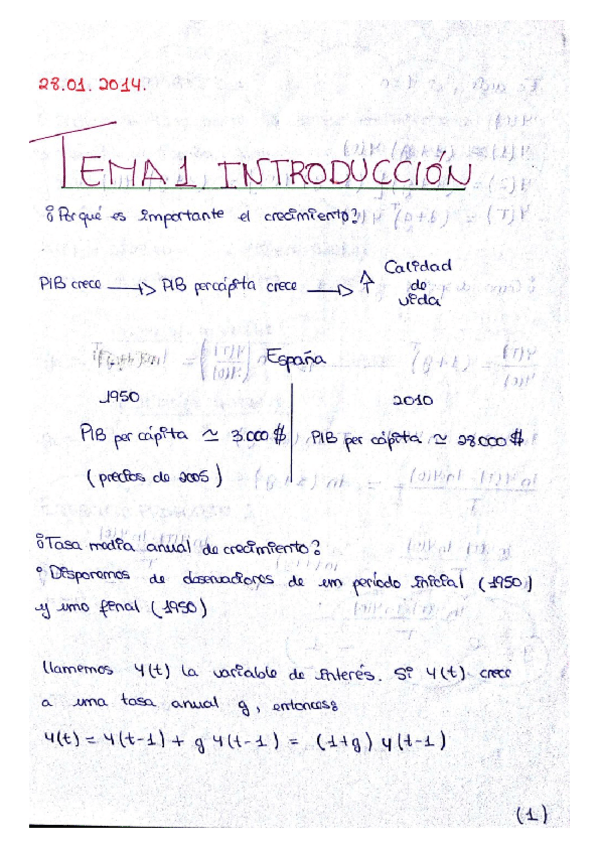 28.01.2014.
TEMA 1 INTRODUCCIÓN
¿Por qué es importante el crecimiento?
PIB crece → PIB percápita crece → ↑ Calidad de vida
España
1950 2010
PIB per cápita ≃ 3000 $ PIB per cápita ≃ 28000 $
(precios de 2005)
¿Tasa media anual de crecimiento?
° Disponemos de observaciones de un período inicial (1950)
y uno final (1950)
llamemos Y(t) la variable de interés. Si Y(t) crece
a una tasa anual g, entonces:
Y(t) = Y(t-1) + g Y(t-1) = (1+g) Y(t-1)
(1)